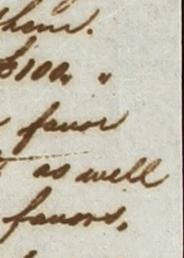 them.
$100,, "
favor
as well
favors,